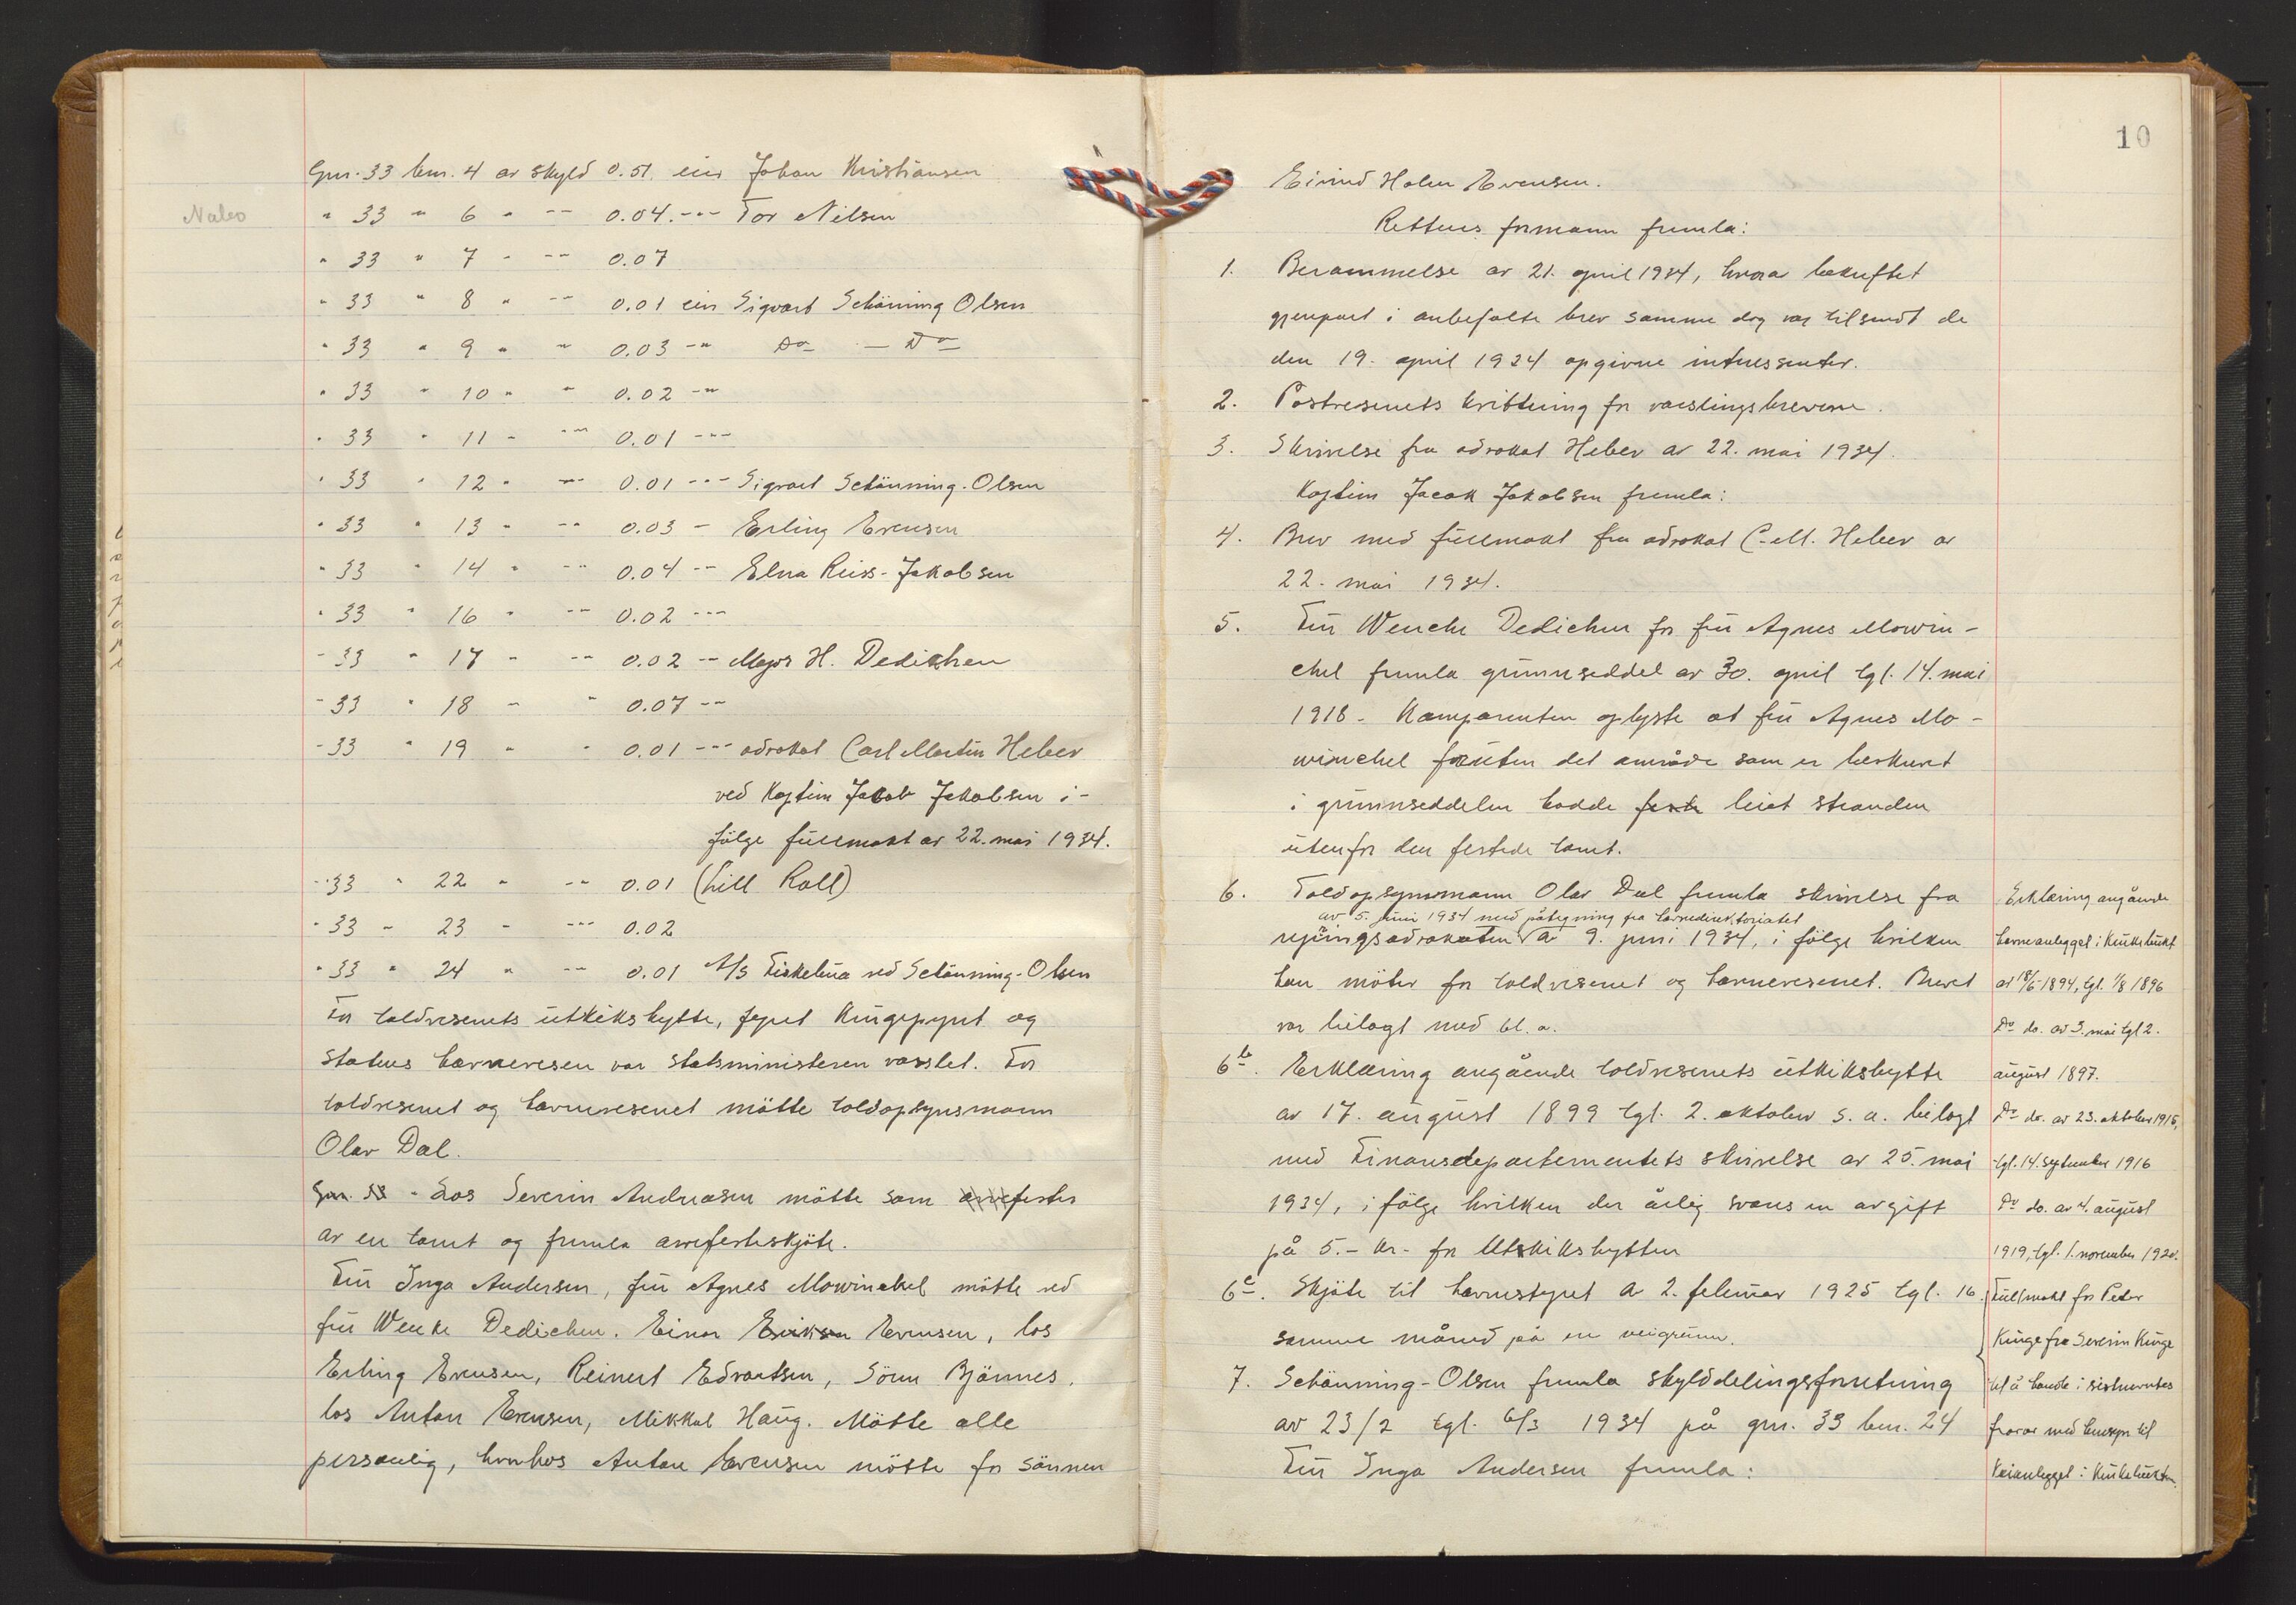 Gnr. 33 bnr. 4 av skyld 0.51 eier Johan Kristiansen
Nabo
" 33 " 6 " -- 0.04 --- Tor Nilsen
" 33 " 7 " -- 0.07
" 33 " 8 " -- 0.01 eier Sigvart Schönning Olsen
" 33 " 9 " " 0.03 -" Do — Do
" 33 " 10 " " 0.02 -"
" 33 " 11 " -" 0.01 ---
" 33 " 12 " -" 0.01 --- Sigvart Schönning-Olsen
" 33 " 13 " -- 0.03 - Erling Evensen
" 33 " 14 " -- 0.04 -- Elna Reiss-Jakobsen
" 33 " 16 " -- 0.02 ---
" 33 " 17 " -- 0.02 -- Major H. Dedichen
" 33 " 18 " " 0.07 --
" 33 " 19 " " 0.01 --- advokat Carl Martin Heber
ved Kaptein Jakob Jakobsen i-
følge fullmakt av 22. mai 1934.
" 33 " 22 " -- 0.01 (hill Roll)
" 33 " 23 " --- 0.02
" 33 " 24 " -- 0.01 A/S Fiskebua ved Schönning-Olsen
For toldvesenets utkikshytte, fyret Kinge og
Statens havnevesen var statsministeren varslet. For
toldvesenet og havnevesenet møtte toldopsynsmann
Olav Dal.
Los Severin Andreasen møtte som arvefester
av en tomt og fremla arvefesteskjøte.
Fru Inga Andersen, fru Agnes Mowinckel møtte ved
fru Wenke Dedichen. Einar Eriksen Evensen, los
Erling Evensen, Reinert Edvartsen, Sören Bjönnes,
los Anton Evensen, Mikkal Haug. Møtte alle
personlig, hvorhos Anton Evensen møtte for sönnen
10
Eivind Holm Evensen.
Rettens formann fremla:
1. Berammelse av 21. april 1934, hvorav bekreftet
gjenpart i anbefalte brev samme dag var tilsendt de
den 19. april 1934 opgivne interessenter.
2. Postvesenets kvittering for varslingsbrevene.
3. Skrivelse fra advokat Heber av 22. mai 1934.
Kaptein Jacob Jakobsen fremla:
4. Brev med fullmakt fra advokat C. M. Heber av
22. mai 1934.
5. Fru Wenche Dedichen for fru Agnes Mowin-
ckel fremla grunnseddel av 30. april tgl. 14. mai
1918. Komparenten oplyste at fru Agnes Mo-
winckel foruten det område som er beskrevet
i grunnseddelen hadde feste leiet stranden
utenfor den festede tomt.
6. Toldopsynsmann Olav Dal fremla skrivelse fra
av 5. juni 1934 med påtegning fra havnedirektoriatet
regjeringsadvokaten av 9. juni 1934, i følge hvilken
han møter for toldvesenet og havnevesenet. Brevet
var bilagt med bl. a.
6b. Erklæring angående toldvesenets utkikshytte
av 17. august 1899 tgl. 2. oktober s. a. bilagt
med Finansdepartementets skrivelse av 25. mai
1934, i følge hvilken der årlig svares en avgift
på 5.- kr. for Utkikshytten
6c. Skjøte til havnestyret av 2. februar 1925 tgl. 16.
samme måned på en veigrunn.
7. Schönning-Olsen fremla skylddelingsforretning
av 23/2 tgl. 6/3 1934 på gnr. 33 bnr. 24
Fru Inga Andersen fremla:
Erklæring angående
havneanlegget i
av 18/6 1894, tgl. 1/8 1896
Do do. av 3. mai tgl 2.
august 1897.
Do do. av 23. oktober 1915,
tgl. 14. september 1916
Do do. av 4. august
1919, tgl. 1. november 1920.
Fullmakt for Peder
Kinge fra Severin Kinge
til å handle i sistnevntes
fravær med hensyn til
Kaianlegget i